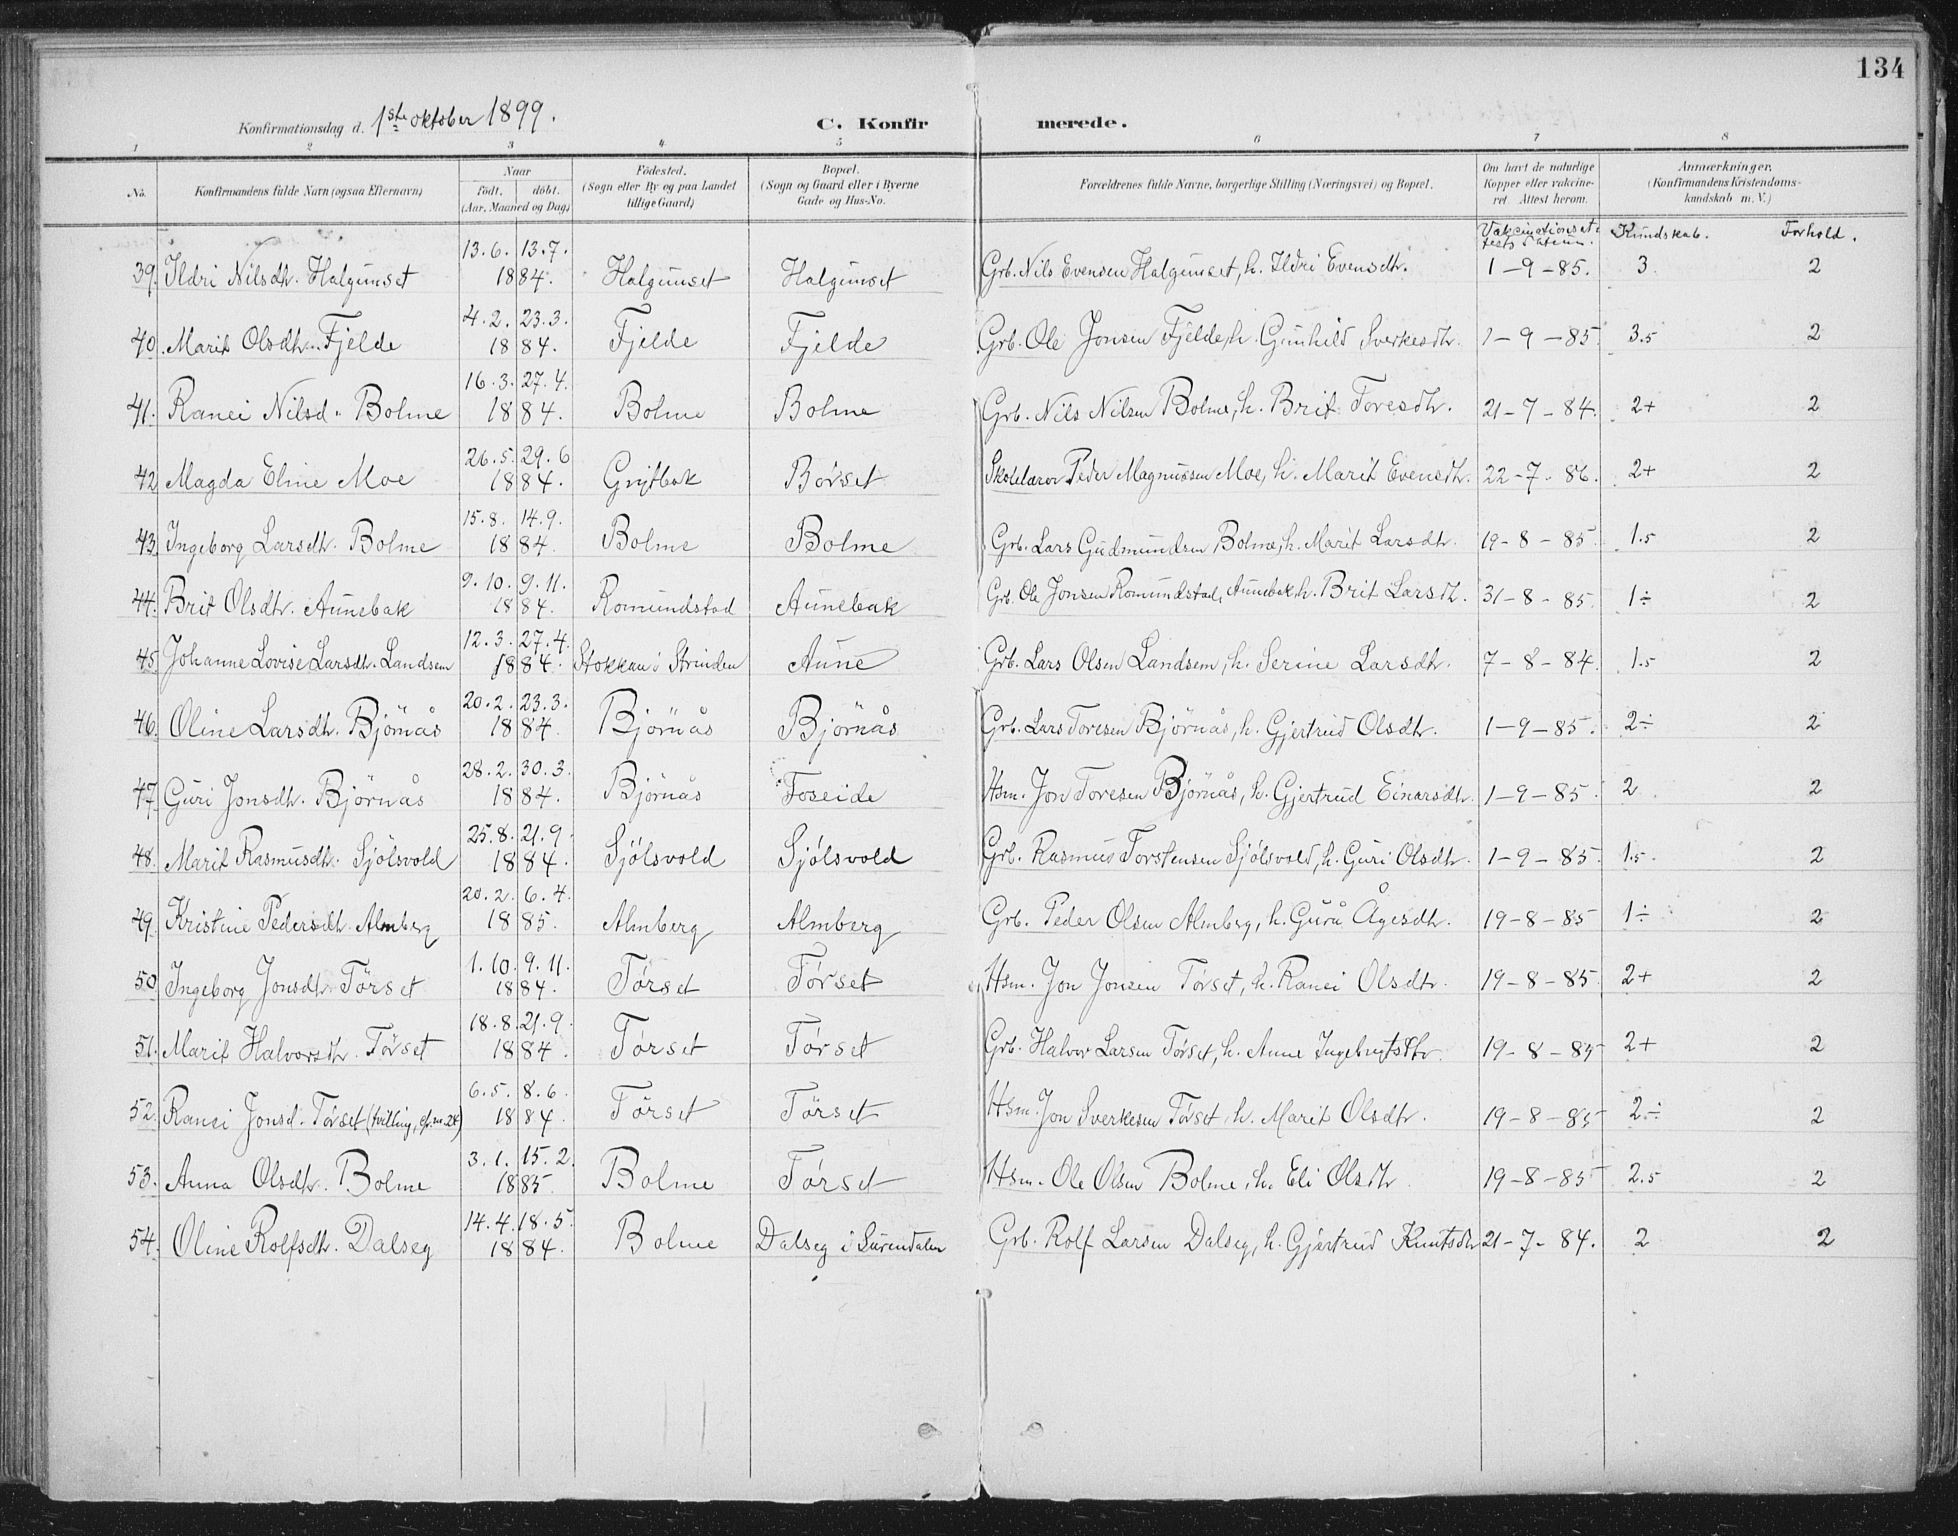 134
Konfirmationsdag d. 1ste oktober 1899.
C. Konfirmerede.
1 2 3 4 5 6 7 8
No. Konfirmandens fulde Navn (ogsaa Efternavn) Naar født. døbt. (Aar, Maaned og Dag) Fødested. (Sogn eller By og paa Landet tillige Gaard) Bopæl. (Sogn og Gaard eller i Byerne Gade og Hus-No. Forældrenes fulde Navne, borgerlige Stilling (Næringsvei) og Bopæl. Om havt de naturlige Kopper eller vakcineret. Attest herom. Anmærkninger. (Konfirmandens Kristendomskundskab m. V.)
Vakcinationsattests Datum. Kundskab. Forhold.
39. Ildri Nilsdtr. Halgunset 13.6. 13.7. 1884. Halgunset Halgunset Grb. Nils Evensen Halgunset, h. Ildri Evensdtr. 1-9-85. 3 2
40. Marit Olsdtr. Fjelde 4.2. 23.3. 1884. Fjelde Fjelde Grb. Ole Jonsen Fjelde, h. Gunhild Sverkesdtr. 1-9-85 3.5 2
41. Ranei Nilsd. Bolme 16.3. 27.4. 1884. Bolme Bolme Grb. Nils Nilsen Bolme, h. Brit Toresdtr. 21-7-84. 2+ 2
42 Magda Eline Moe 26.5. 29.6 1884. Grytbak Børset Skolelærer Peder Magnussen Moe, h. Marit Evensdtr. 22-7-86. 2+ 2
43. Ingeborg Larsdtr. Bolme 15.8. 14.9. 1884. Bolme Bolme Grb. Lars Gudmundsen Bolme, h. Marit Larsdtr. 19-8-85. 1.5 2
44. Brit Olsdtr. Aunebak 9.10. 9.11. 1884. Romundstad Aunebak Grb. Ole Jonsen Romundstad, Aunebak, h. Brit Larsdtr. 31-8-85. 1÷ 2
45 Johanne Lovise Larsdtr. Landsem 12.3. 27.4. 1884. Stokkan i Strinden Aune Grb. Lars Olsen Landsem, h. Serine Larsdtr. 7-8-84. 1.5 2
46. Oline Larsdtr. Bjørnås 20.2. 23.3. 1884. Bjørnås Bjørnås Grb. Lars Toresen Bjørnås, h. Gjertrud Olsdtr. 1-9-85. 2÷ 2
47. Guri Jonsdtr. Bjørnås 28.2. 30.3. 1884. Bjørnås Foseide Hsm. Jon Toresen Bjørnås, h. Gjertrud Einarsdtr. 1-9-85. 2 2
48. Marit Rasmusdtr. Sjølsvold 25.8. 21.9. 1884. Sjølsvold Sjølsvold Grb. Rasmus Torstensen Sjølsvold, h. Guri Olsdtr. 1-9-85. 1.5. 2
49. Kristine Pedersdtr. Almberg 20.2. 6.4. 1885. Almberg Almberg Grb. Peder Olsen Almberg, h. Gurå Ågesdtr. 19-8-85 1÷ 2
50 Ingeborg Jonsdtr. Tørset 1.10. 9.11. 1884. Tørset Tørset Hsm. Jon Jonsen Tørset, h. Ranei Olsdtr. 19-8-85. 2+ 2
51. Marit Halvorsdtr. Tørset 18.8. 21.9. 1884. Tørset Tørset Grb. Halvor Larsen Tørset, h. Anne Ingebrigtsdtr. 19-8-85 2+ 2
52. Ranei Jonsd. Tørset (tvilling, cf. no. 24) 6.5. 8.6. 1884. Tørset Tørset Hsm. Jon Sverkesen Tørset, h. Marit Olsdtr. 19-8-85 2÷ 2
53. Anna Olsdtr. Bolme 3.1. 15.2. 1885. Bolme Tørset Hsm. Ole Olsen Bolme, h. Eli Olsdtr 19-8-85 2.5 2
54. Oline Rolfsdtr. Dalseg 14.4. 18.5. 1884. Bolme Dalseg i Surendalen Grb. Rolf Larsen Dalseg, h. Gjertrud Knutsdtr 21-7-84. 2 2